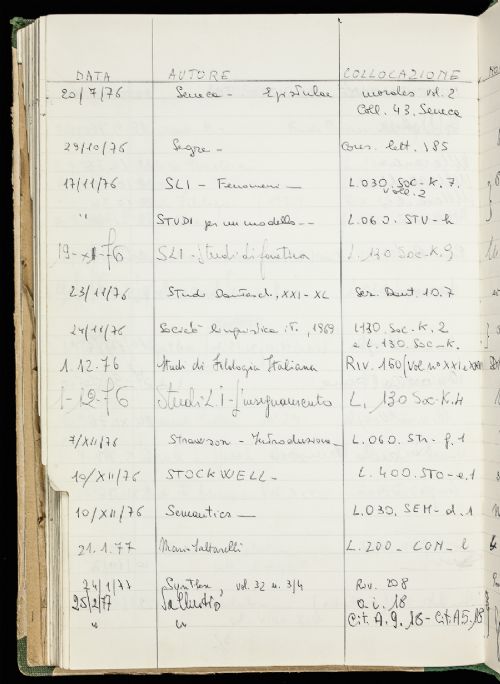 DATA AUTORE COLLOCAZIONE
20/7/76 Seneca - Epistulae morales vol. 2
Coll. 43. Seneca
29/10/76 Segre - Cons. lett. 185
17/11/76 SLI - Fenomeni - L.030. Soc-K.7.
voll. 2
" STUDI per un modello -- L.060. STU-h
19-XI-76 SLI - Studi di fonetica L.130 Soc-K.9
23/11/76 Studi Danteschi, XXI-XL Sez. Dant. 10.7
24/11/76 Società linguistica it., 1969 L130. Soc-K.2
e L.130. Soc-K.
1.12.76 Studi di Filologia Italiana RIV. 160/Vol. nº XXI e
1-12-76 Studi L I - L'insegnamento L. 130 Soc-K.4
7/XII/76 Strawson - Introduzione - L.060. Str-f.1
10/XII/76 STOCKWELL - L.400. STO-e.1
10/XII/76 Semantics - L.030. SEM-d.1
21.1.77 Mario Saltarelli L.200 - COM - l
24/1/77 Synthese, vol. 32 n. 3/4 Riv. 208
25/2/77 Sallustio a.i. 18
" " Cit. A. 9. 18 - Cit. A5. 18